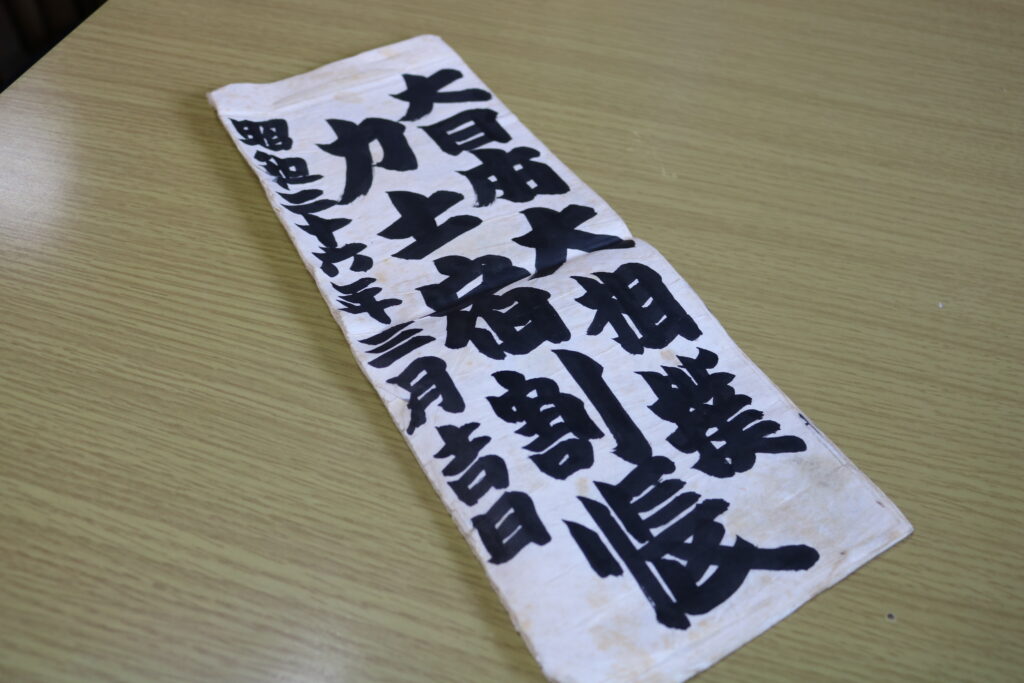 大日本大相撲
力士宿割帳
昭和二十六年三月吉日